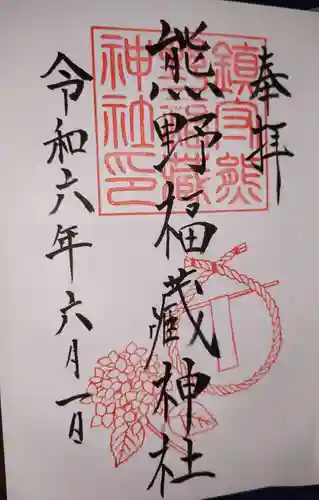 奉拝
鎮守熊
野福蔵
神社印
熊野福藏神社
令和六年六月一日